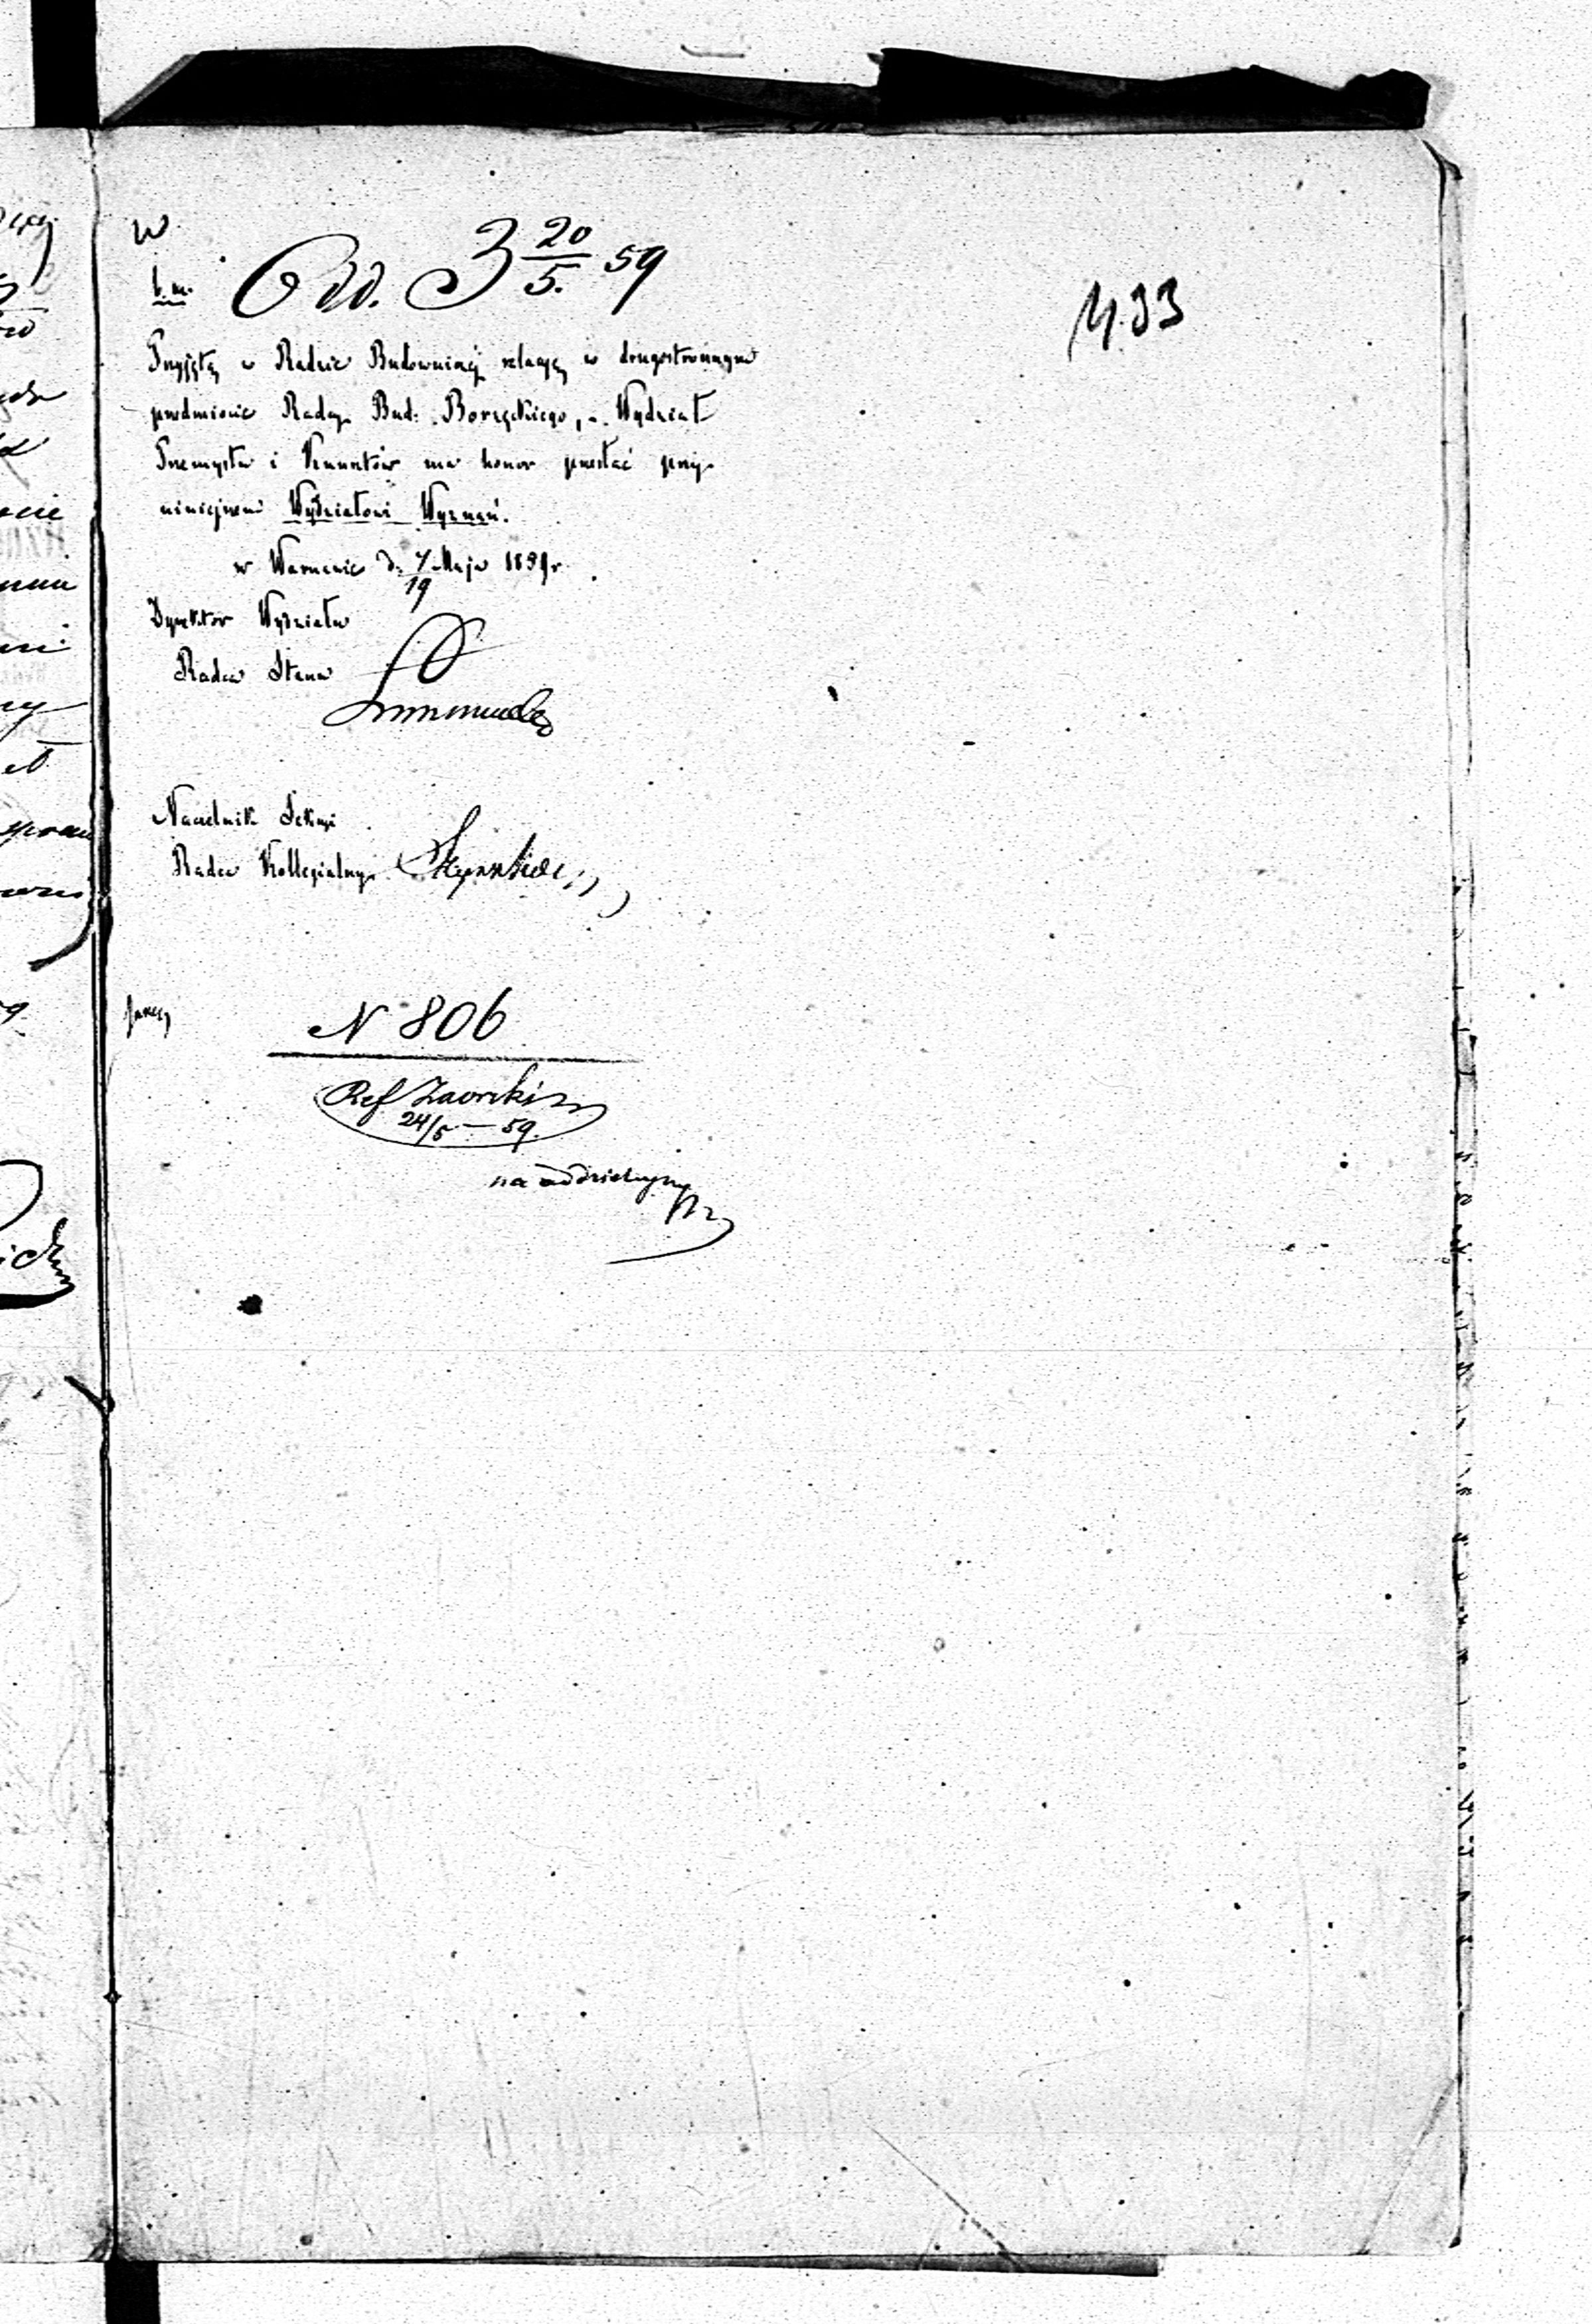 W
Odd. 3 20/5. 59
433
Przyjętą w Radzie Budowniczej relacyę w drugostronnym
przedmiocie Radcy Bud: Borzęckiego, Wydział
Przemysłu i Kunsztów ma honor przesłać przy
niniejszem Wydziałowi Wyznań.
w Warszawie d: 7/19 Maja 1859 r.
Dyrektor Wydziału
Radca Stanu
Naczelnik Sekcyi
Radca Kollegialny
N 806
Ref Zaorski
24/5 - 59.
na oddzielnym